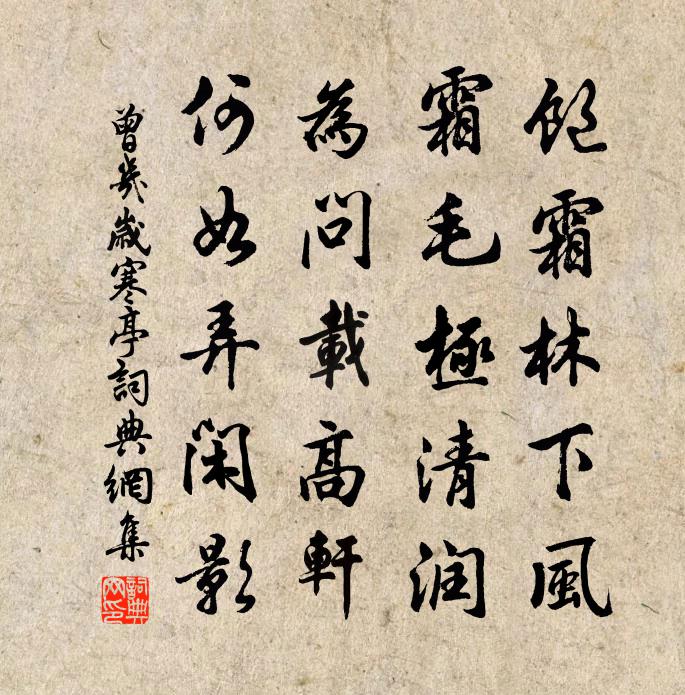 飽霜林下風
霜毛極清潤
為問載高軒
何如弄閑影
曾幾歲寒亭詞典網集
詞典網印